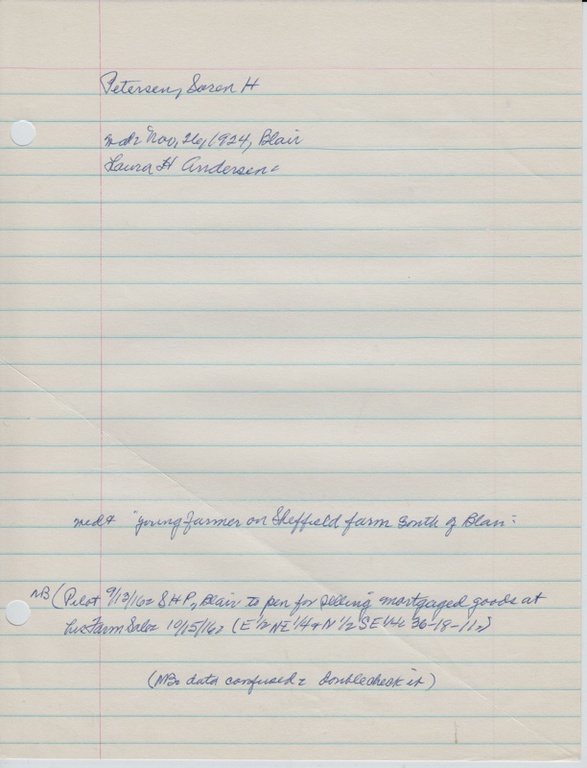 Petersen, Soren H
Nov, 26, 1924, Blair
Laura H Andersen
"young farmer on Sheffield farm south of Blair"
NB (Pilot 9/13/16: S H P, Blair to pen for selling mortgaged goods at
his Farm Sale: 10/15/16: (E 1/2 NE 1/4 & N 1/2 SE 1/4: 36-18-11:)
(NB: data confused: Doublecheck it)